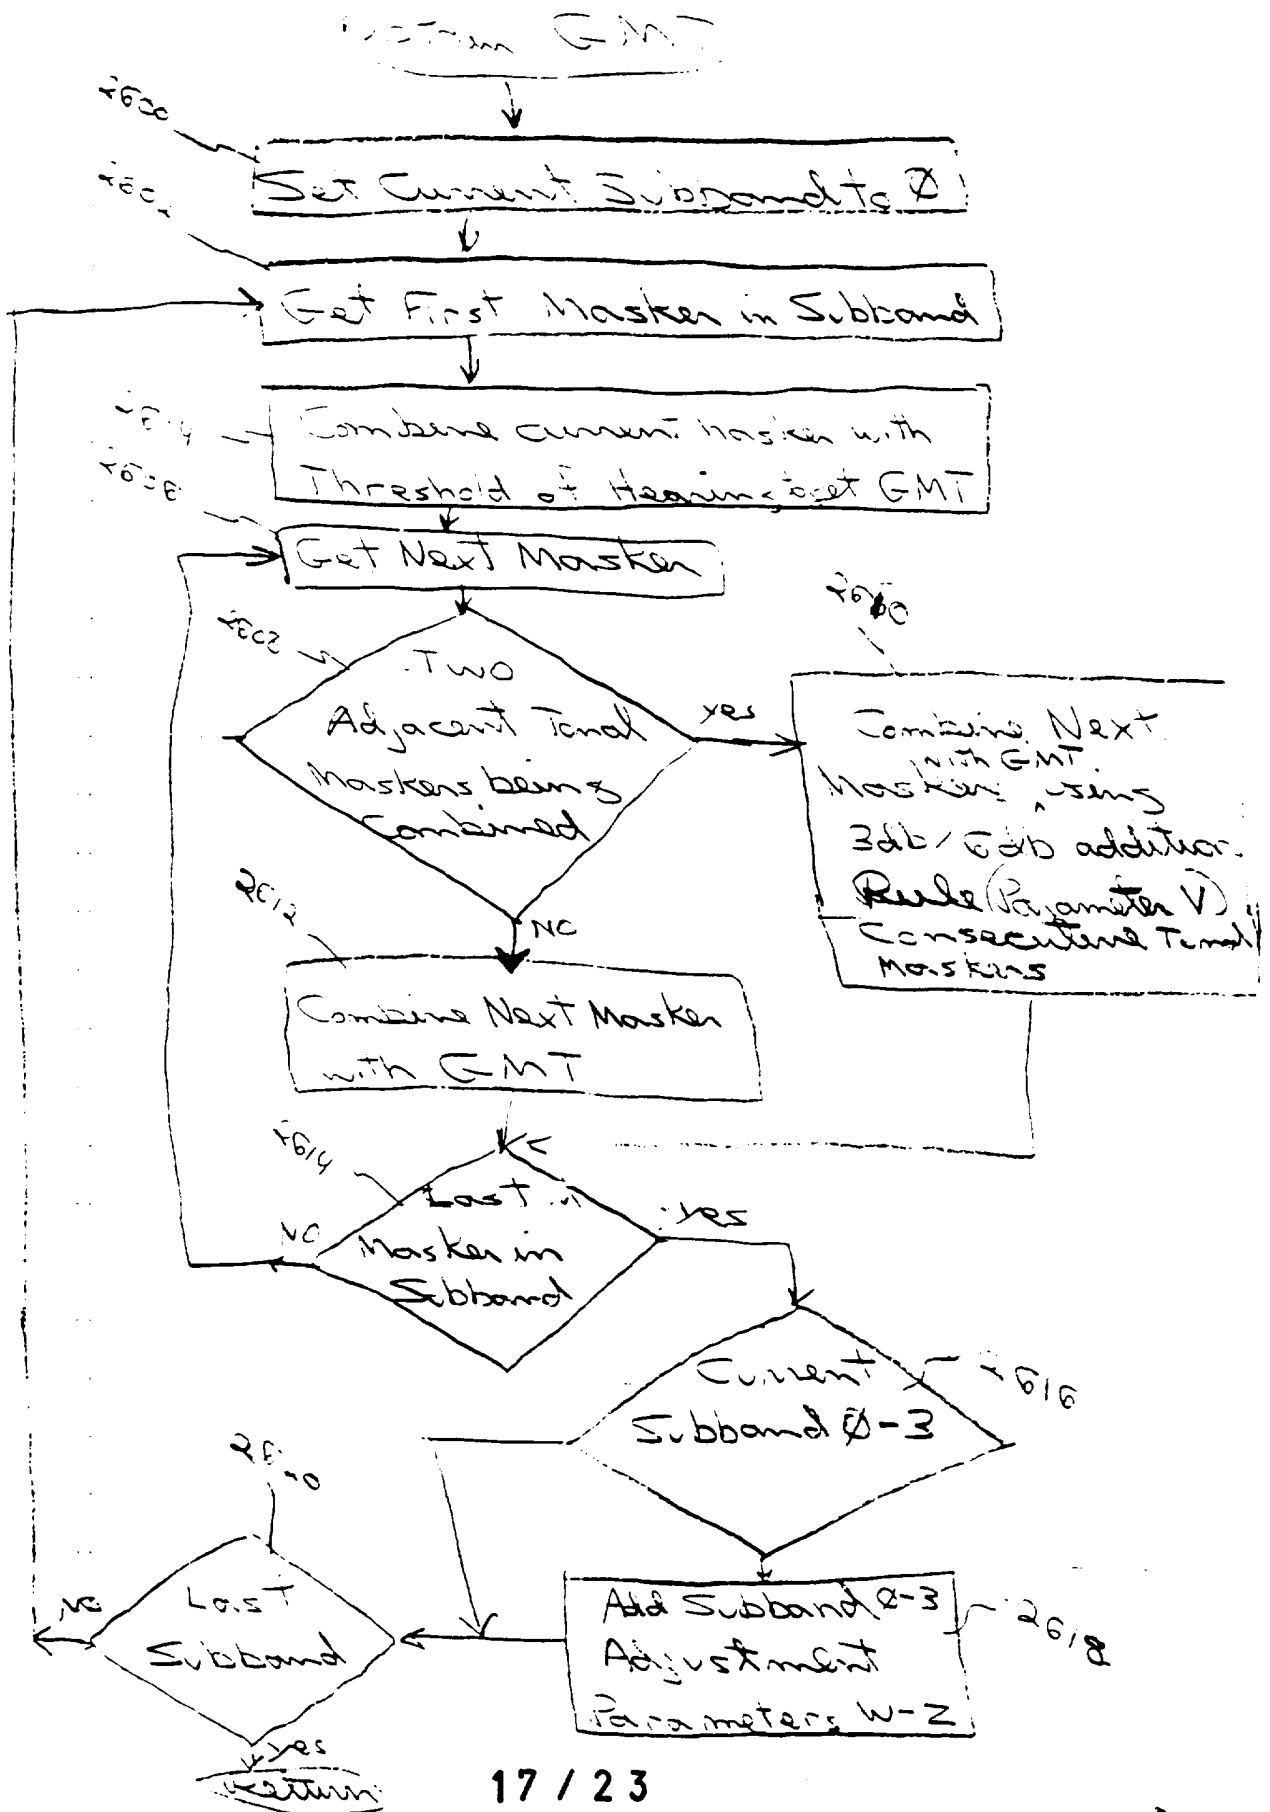 GMT
2600
Set Current Subband to Ø
2602
Get First Masker in Subband
Combine current Masker with
Threshold of Hearing to get GMT
Get Next Masker
Two
Adjacent Tonal
Maskers being
Combined
yes
Combine Next
with GMT
Masker ^ using
3db/6db addition
Rule (Parameter V)
Consecutive Tonal
Maskers
NO
2612
Combine Next Masker
with GMT
2614
Last
Masker in
Subband
NO
yes
Current
Subband Ø-3
2616
Add Subband Ø-3
Adjustment
Parameters W-Z
2618
2620
Last
Subband
NO
yes
Return
17/23